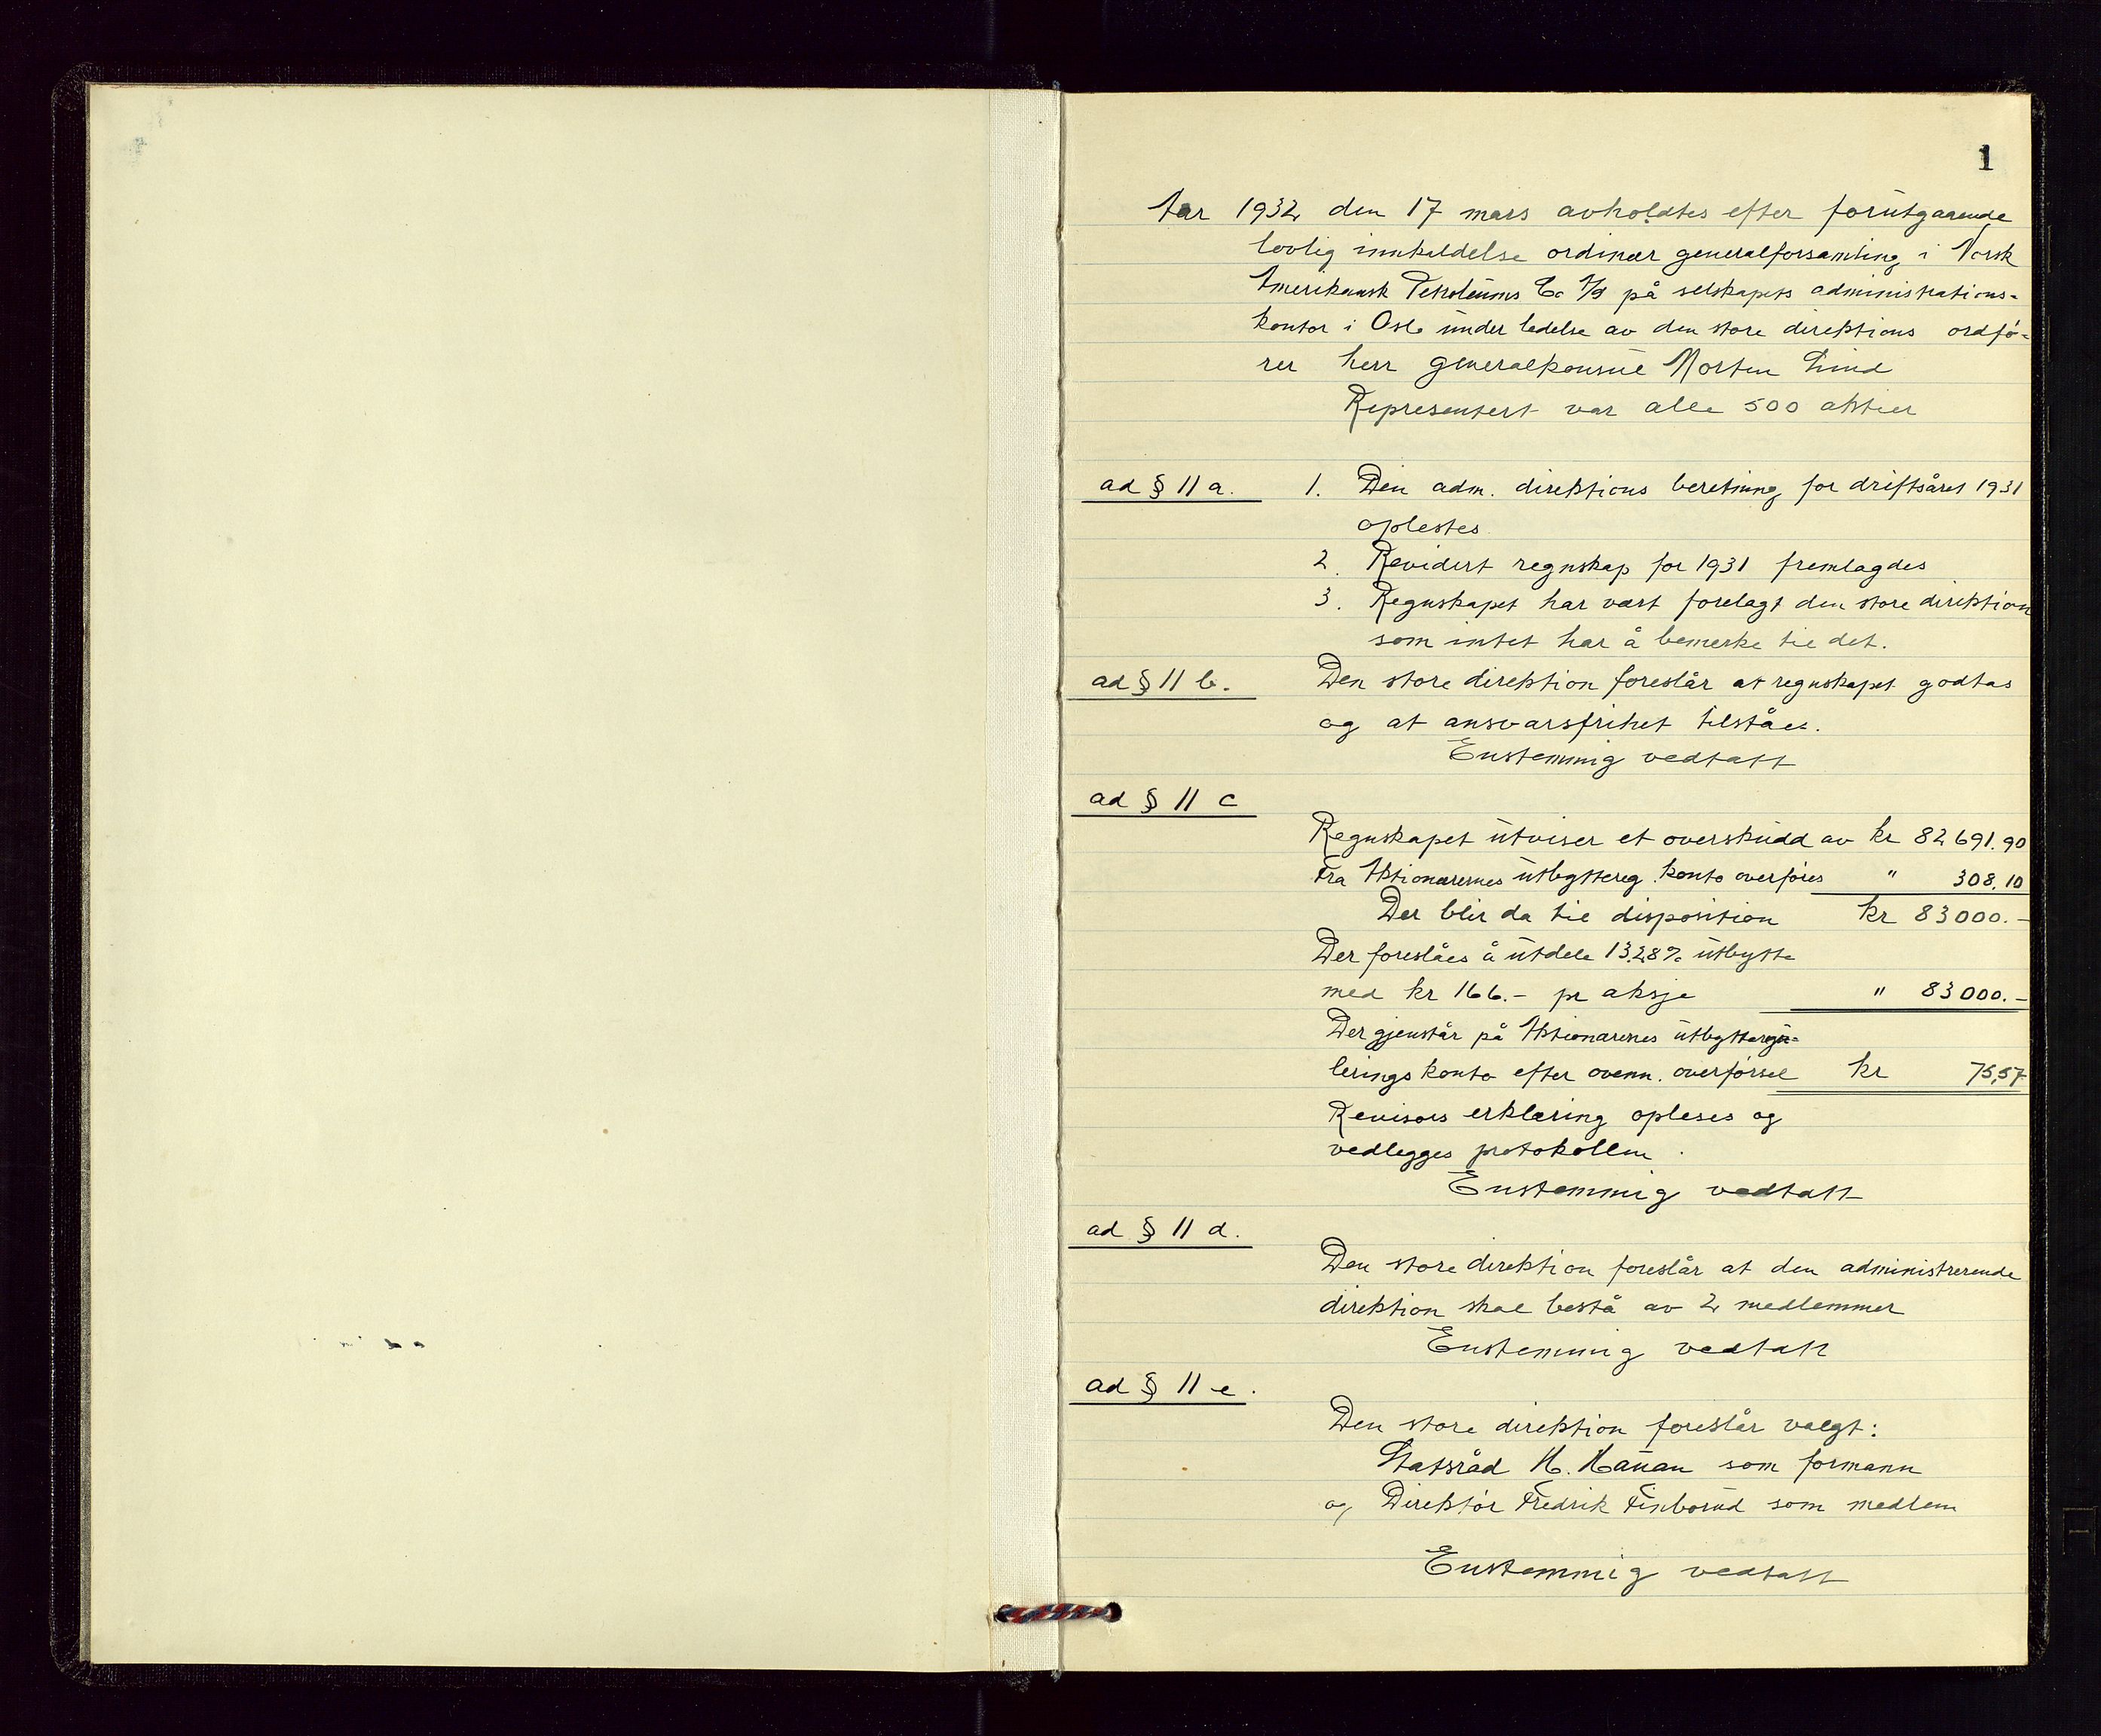 1
Aar 1932 den 17 mars avholdtes efter forutgaaende
lovlig innkaldelse ordinær generalforsamling i Norsk
Amerikansk Petroleums Co A/S på selskapets administrations-
kontor i Oslo under ledelse av den store direktions ordfø-
rer herr generalkonsul Morten Lind
Representert var alle 500 aktier
ad § 11 a. 1. Den adm. direktions beretning for driftsåret 1931
oplestes
2. Revidert regnskap for 1931 fremlagdes
3. Regnskapet har vært forelagt den store direktion
som intet har å bemerke til det.
ad § 11 b. Den store direktion foreslår at regnskapet godtas
og at ansvarsfrihet tilståes.
Enstemmig vedtatt
ad § 11 c
Regnskapet utviser et overskudd av kr 82 691.90
Fra Aktionærernes utbyttereg. konto overføres " 308.10
Der blir da til disposition kr 83 000.-
Der foreslåes å utdele 13.28% utbytte
med kr 166.- pr aksje " 83 000.-
Der gjenstår på Aktionærenes utbytteregu-
lerings konto efter ovenn. overførsel kr 75,57
Revisors erklæring opleses og
vedlegges protokollen.
Enstemmig vedtatt
ad § 11 d.
Den store direktion foreslår at den administrerende
direktion skal bestå av 2 medlemmer
Enstemmig vedtatt
ad § 11 e.
Den store direktion foreslår valgt:
Statsråd H. Hauan som formann
og Direktør Fredrik Finborud som medlem
Enstemmig vedtatt